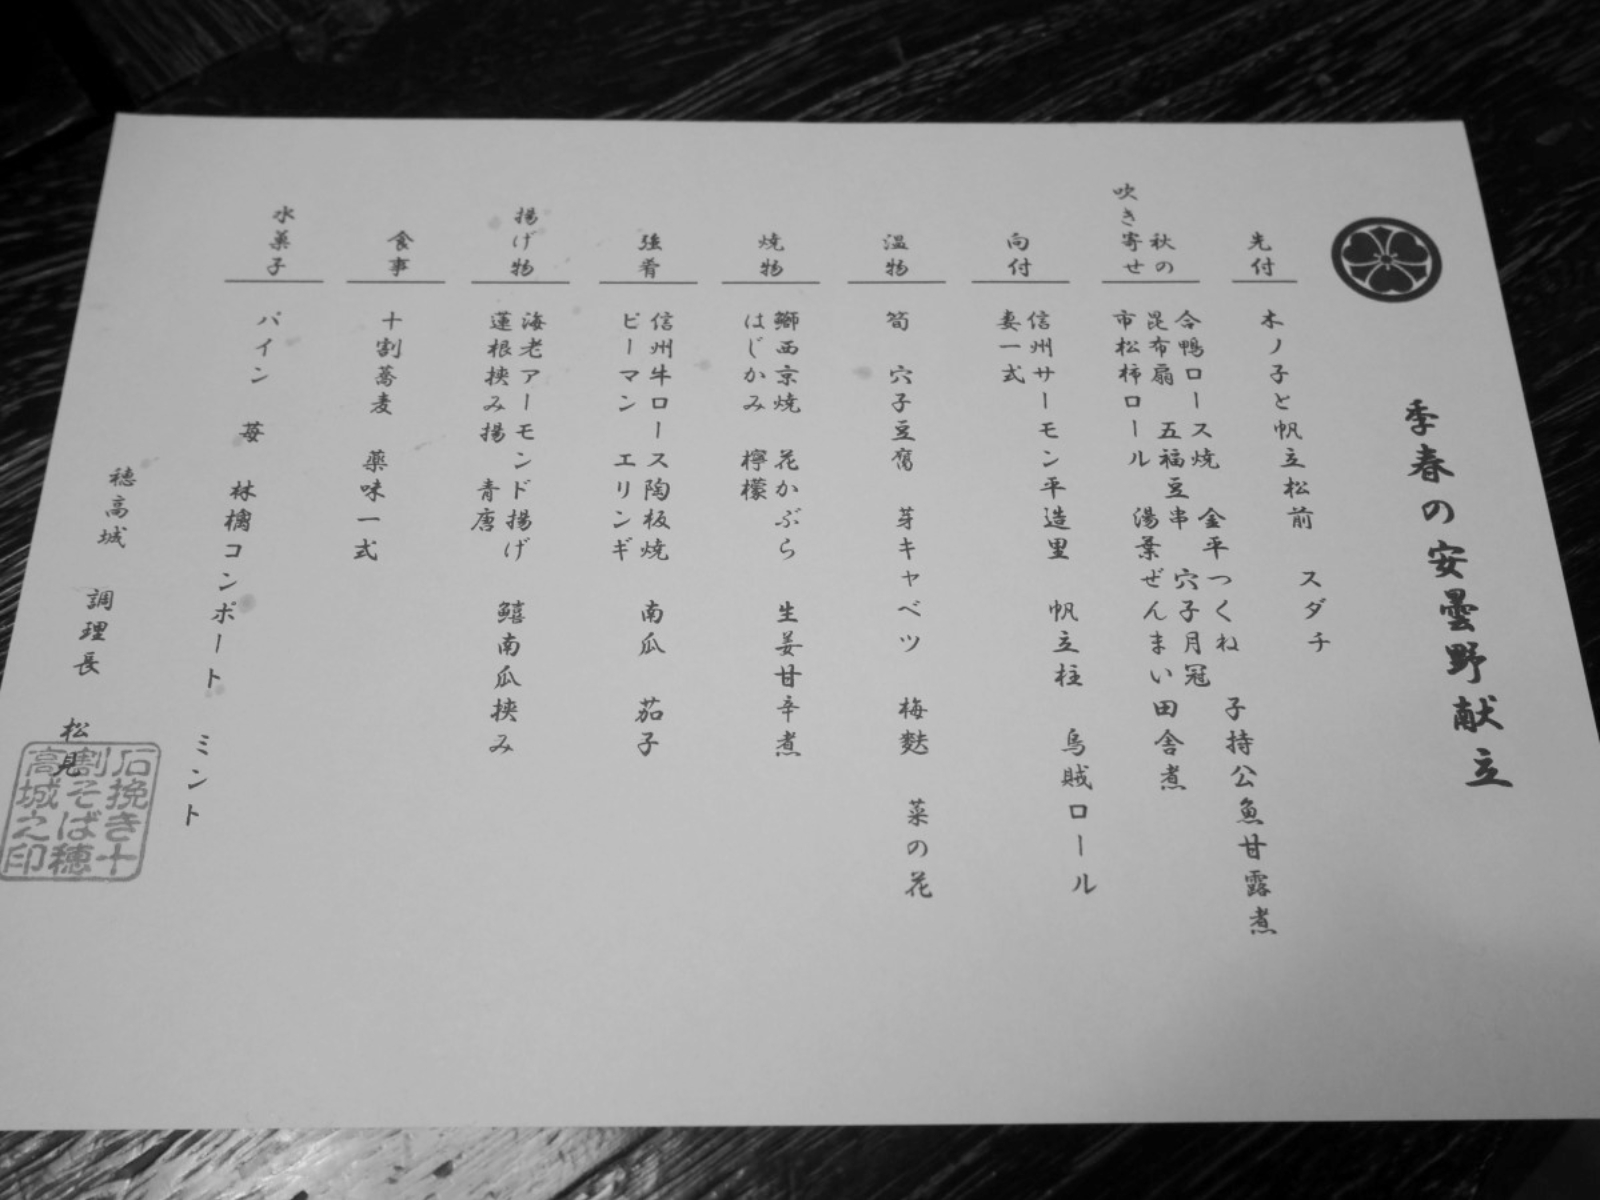 季春の安曇野献立
先付
木ノ子と帆立松前　スダチ
秋の
吹き寄せ
合鴨ロース焼　金平つくね　子持公魚甘露煮
昆布扇　五福豆串　穴子月冠
市松柿ロール　湯葉ぜんまい田舎煮
向付
信州サーモン平造里　帆立柱　烏賊ロール
妻一式
温物
筍　穴子豆腐　芽キャベツ　梅麩　菜の花
焼物
鰤西京焼　花かぶら　生姜甘辛煮
はじかみ　檸檬
強肴
信州牛ロース陶板焼　南瓜　茄子
ピーマン　エリンギ
揚げ物
海老アーモンド揚げ　鱚南瓜挟み
蓮根挟み揚　青唐
食事
十割蕎麦　薬味一式
水菓子
パイン　苺　林檎コンポート　ミント
穂高城　調理長　松見
石挽き十
割そば穂
高城之印